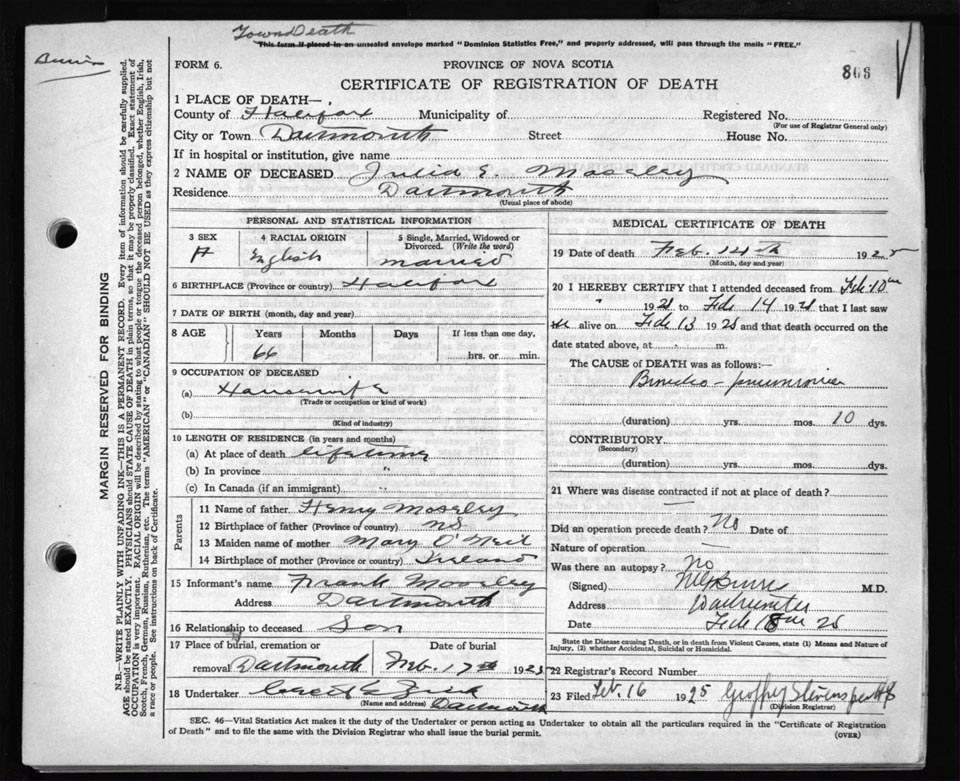 Town Death
This form if placed in an unsealed envelope marked "Dominion Statistics Free," and properly addressed, will pass through the mails "FREE."
FORM 6.
PROVINCE OF NOVA SCOTIA
CERTIFICATE OF REGISTRATION OF DEATH
1 PLACE OF DEATH—
County of Halifax Municipality of Registered No.
(For use of Registrar General only)
City or Town Dartmouth Street House No.
If in hospital or institution, give name
2 NAME OF DECEASED Julia E. Moseley
Residence Dartmouth
(Usual place of abode)
PERSONAL AND STATISTICAL INFORMATION
3 SEX 4 RACIAL ORIGIN 5 Single, Married, Widowed or Divorced. (Write the word)
F English married
6 BIRTHPLACE (Province or country) Halifax
7 DATE OF BIRTH (month, day and year)
8 AGE Years Months Days If less than one day,
66 hrs. or min.
9 OCCUPATION OF DECEASED
(a) Housewife
(Trade or occupation or kind of work)
(b)
(Kind of industry)
10 LENGTH OF RESIDENCE (in years and months)
(a) At place of death lifetime
(b) In province "
(c) In Canada (if an immigrant)
Parents
11 Name of father Henry Moseley
12 Birthplace of father (Province or country) NS
13 Maiden name of mother Mary O'Neil
14 Birthplace of mother (Province or country) Ireland
15 Informant's name Frank Moseley
Address Dartmouth
16 Relationship to deceased Son
17 Place of burial, cremation or Date of burial
removal Dartmouth Feb. 17th 1925
18 Undertaker
(Name and address) Dartmouth
MEDICAL CERTIFICATE OF DEATH
19 Date of death Feb. 14th 1925
(Month, day and year)
20 I HEREBY CERTIFY that I attended deceased from Feb 10th
1925 to Feb 14 1925 that I last saw
alive on Feb 13 1925 and that death occurred on the
date stated above, at m.
The CAUSE OF DEATH was as follows:—
Broncho-pneumonia
(duration) yrs. mos. 10 dys.
CONTRIBUTORY
(Secondary)
(duration) yrs. mos. dys.
21 Where was disease contracted if not at place of death?
Did an operation precede death? No Date of
Nature of operation
Was there an autopsy? No
(Signed) M.D.
Address
Date Feb 25
State the Disease causing Death, or in death from Violent Causes, state (1) Means and Nature of Injury, (2) whether Accidental, Suicidal or Homicidal.
22 Registrar's Record Number
23 Filed Feb. 16 1925 Geoffrey Stevens
(Division Registrar)
SEC. 46—Vital Statistics Act makes it the duty of the Undertaker or person acting as Undertaker to obtain all the particulars required in the "Certificate of Registration
of Death" and to file the same with the Division Registrar who shall issue the burial permit.
(OVER)
MARGIN RESERVED FOR BINDING
N.B.—WRITE PLAINLY WITH UNFADING INK—THIS IS A PERMANENT RECORD. Every item of information should be carefully supplied.
AGE should be stated EXACTLY. PHYSICIANS should STATE CAUSE OF DEATH in plain terms, so that it may be properly classified. Exact statement of
OCCUPATION is very important. RACIAL ORIGIN will be described by stating to what people or tongue the deceased person belonged, whether English, Irish,
Scotch, French, German, Russian, Ruthenian, etc. The terms "AMERICAN" or "CANADIAN" SHOULD NOT BE USED as they express citizenship but not
a race or people. See instructions on back of Certificate.